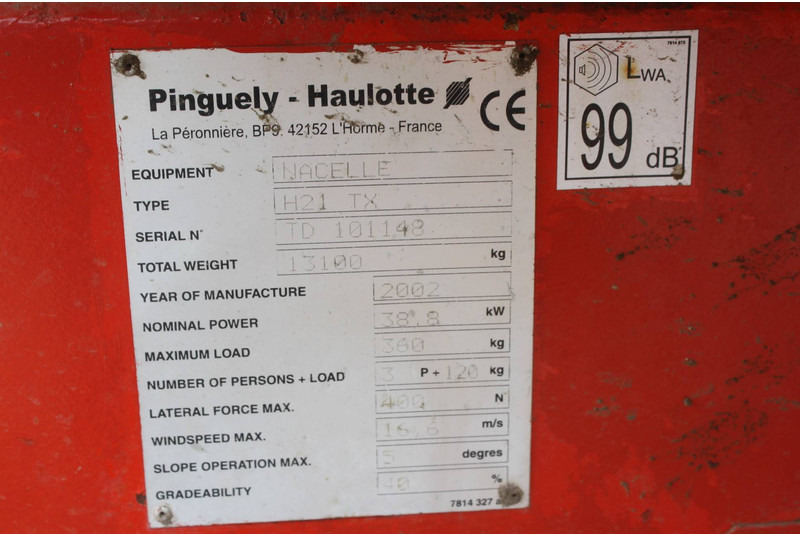 Pinguely - Haulotte
CE
La Péronnière, BP9. 42152 L'Horme - France
EQUIPMENT NACELLE
TYPE H21 TX
SERIAL N° TD 101148
TOTAL WEIGHT 13100 kg
YEAR OF MANUFACTURE 2002
NOMINAL POWER 38.8 kW
MAXIMUM LOAD 360 kg
NUMBER OF PERSONS + LOAD 3 P + 120 kg
LATERAL FORCE MAX. 400 N°
WINDSPEED MAX. 16,6 m/s
SLOPE OPERATION MAX. 5 degres
GRADEABILITY 40 %
7814 327 a
7814 875
LWA
99 dB